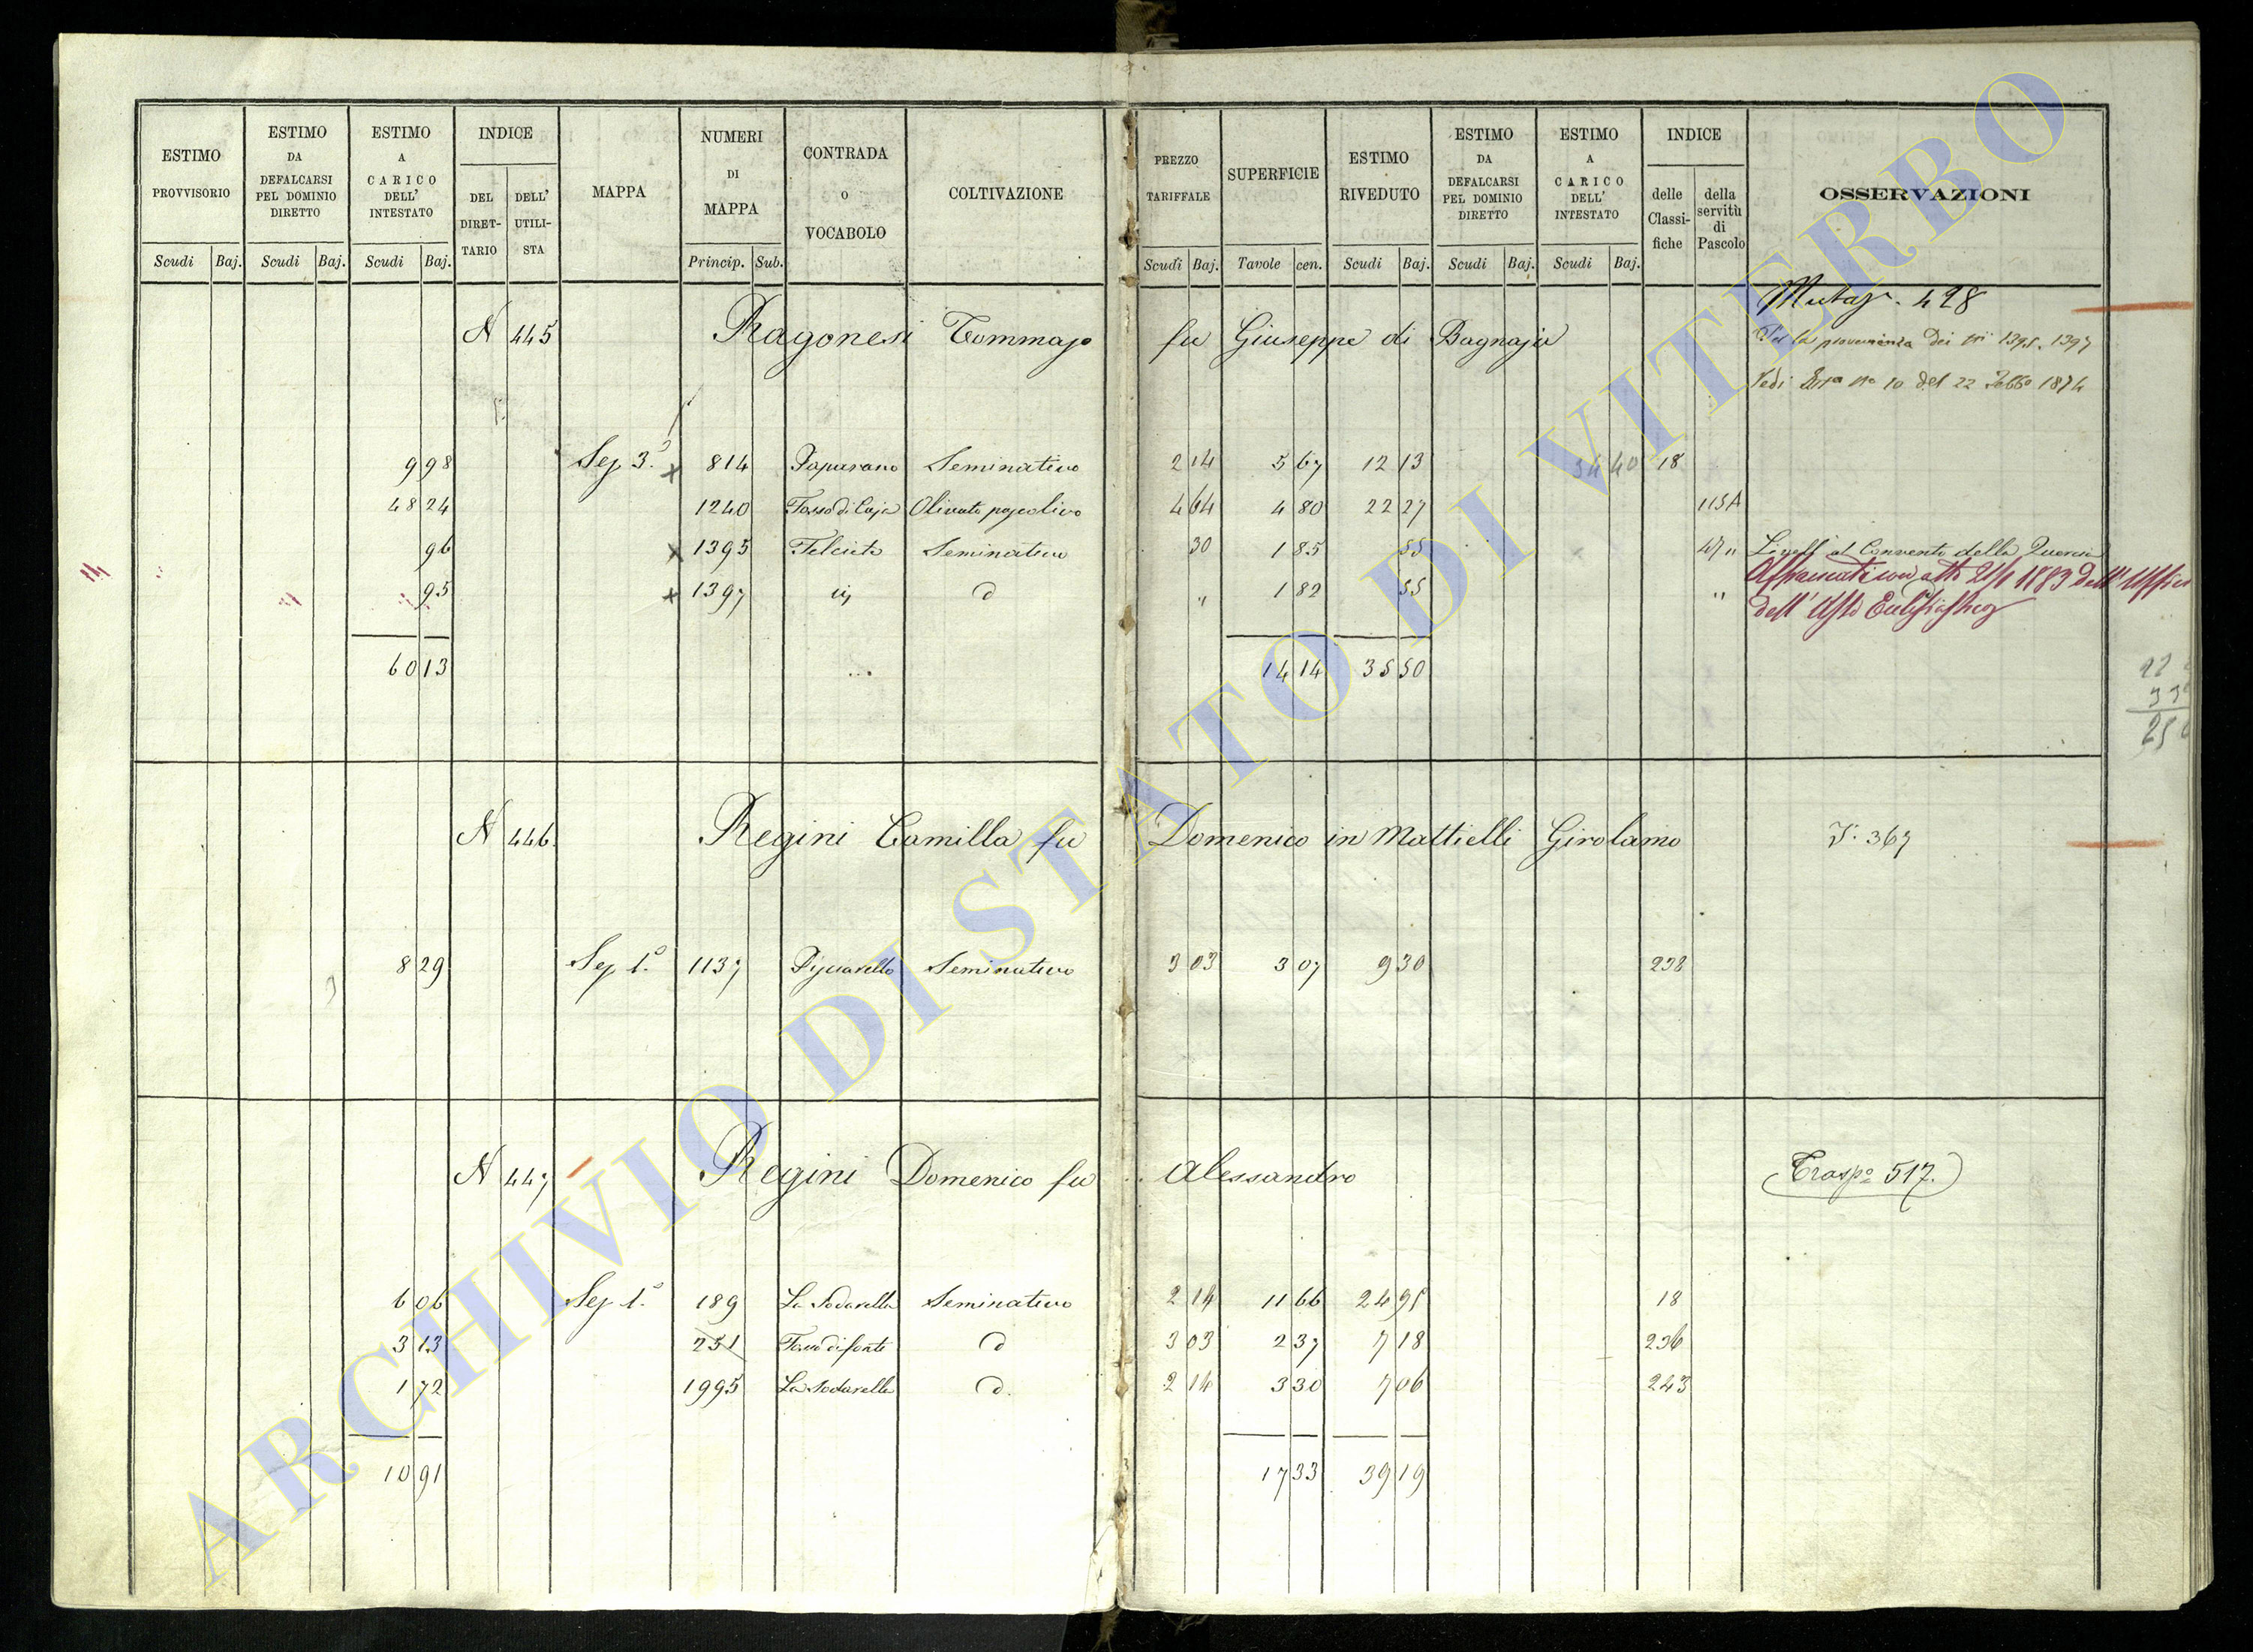 ESTIMO PROVVISORIO
ESTIMO DA DEFALCARSI PEL DOMINIO DIRETTO
ESTIMO A CARICO DELL' INTESTATO
INDICE
DEL DIRETTARIO
DELL' UTILISTA
MAPPA
NUMERI DI MAPPA
CONTRADA o VOCABOLO
COLTIVAZIONE
PREZZO TARIFFALE
SUPERFICIE
ESTIMO RIVEDUTO
ESTIMO DA DEFALCARSI PEL DOMINIO DIRETTO
ESTIMO A CARICO DELL' INTESTATO
INDICE
delle Classifiche
della servitù di Pascolo
OSSERVAZIONI
Scudi Baj. Scudi Baj. Scudi Baj. Princip. Sub. Scudi Baj. Tavole cen. Scudi Baj. Scudi Baj. Scudi Baj.
N 445 Ragonesi Tommaso fu Giuseppe di Bagnaja
Mutaz. 428
Per la provenienza dei ni 1395. 1397
Vedi No 10 del 22 Febbo 1874
9 98 Sez 3.a 814 Paparano Seminativo 2 14 5 67 12 13 34 40 18
48 24 1240 Fosso di Caja Olivato pascolivo 4 64 4 80 22 27 115A
96 1395 Felceto Seminativo 30 1 85 55 47 " Livell' al Convento della Quercia
95 1397 d " 1 82 55 "
Affrancati con atto 1883 dell' Uffizio
dell' Asse Ecclesiastico
60 13 14 14 35 50
N 446 Regini Camilla fu Domenico in Mattielli Girolamo V. 367
8 29 Sez 1.a 1137 Pisciarello Seminativo 3 03 3 07 9 30 238
N 447 Regini Domenico fu Alessandro
Traspo 517.
6 06 Sez 1.a 189 La Sodarella Seminativo 2 14 11 66 24 95 18
3 13 251 d 3 03 2 37 7 18 236
1 72 1995 La Sodarella d. 2 14 3 30 7 06 243
10 91 17 33 39 19
ARCHIVIO DI STATO DI VITERBO